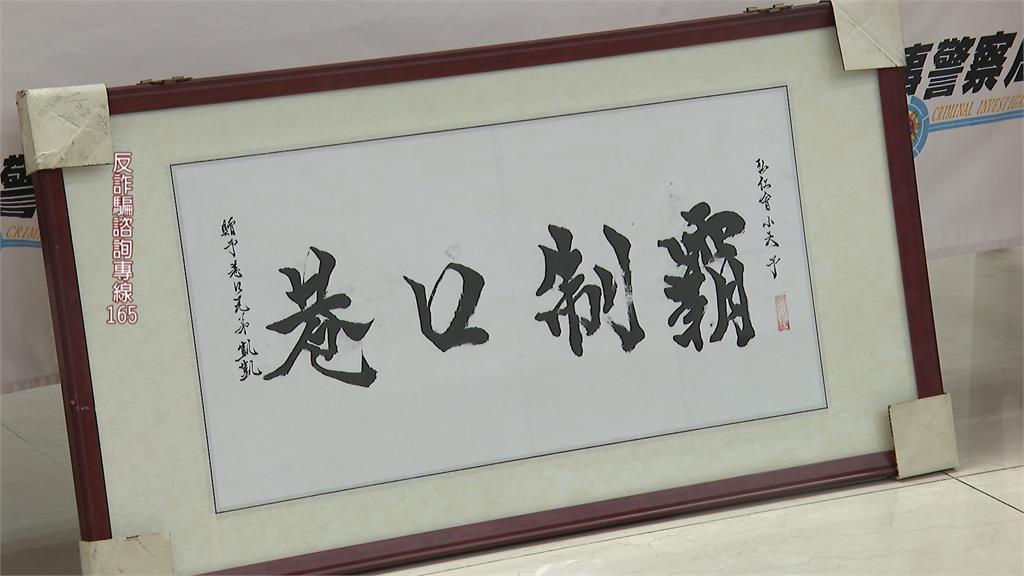 反詐騙諮詢專線165
弘仁會小天
巷口制霸
贈予巷口兄弟 凱凱
警察
CRIMINAL INVESTIGA
警
CRIM